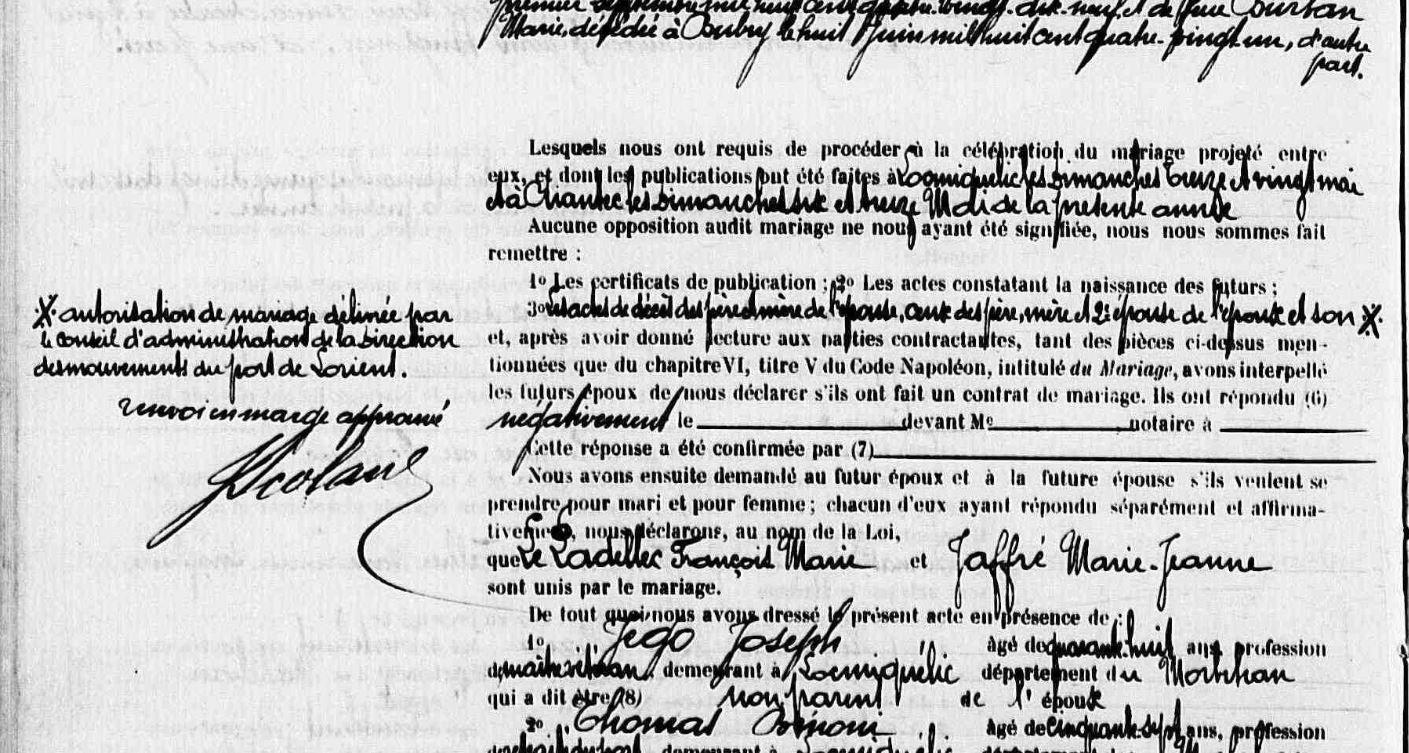 premier septembre mil huit cent quatre-vingt-dix-neuf, et de feue Courtan
Marie, décédée à le huit Juin mil huit cent quatre-vingt-un, d'autre
part.
Lesquels nous ont requis de procéder à la célébration du mariage projeté entre
eux, et dont les publications ont été faites à Locmiquélic les dimanches treize et vingt mai
et à Riantec les dimanches six et treize Mai de la présente année
Aucune opposition audit mariage ne nous ayant été signifiée, nous nous sommes fait
remettre :
1o Les certificats de publication ; 2o Les actes constatant la naissance des futurs ;
3o les actes de décès des père et mère de l'épouse, ceux des père, mère et 2e épouse de l'époux et son X.
X. autorisation de mariage délivrée par
le Conseil d'administration de la Direction
des mouvements du port de Lorient.
renvoi en marge approuvé
et, après avoir donné lecture aux parties contractantes, tant des pièces ci-dessus men-
tionnées que du chapitre VI, titre V du Code Napoléon, intitulé du Mariage, avons interpellé
les futurs époux de nous déclarer s'ils ont fait un contrat de mariage. Ils ont répondu (6)
négativement le devant Me notaire à
Cette réponse a été confirmée par (7)
Nous avons ensuite demandé au futur époux et à la future épouse s'ils veulent se
prendre pour mari et pour femme ; chacun d'eux ayant répondu séparément et affirma-
tivement, nous déclarons, au nom de la Loi,
que Le Ladellec François Marie et Jaffré Marie-Jeanne
sont unis par le mariage.
De tout quoi nous avons dressé le présent acte en présence de :
1o Jego Joseph âgé de quarante-huit ans profession
de maître vétéran demeurant à Locmiquélic département du Morbihan
qui a dit être (8) non parent de l'époux
2o Thomas âgé de cinquante-sept ans, profession
demeurant à Locmiquélic département